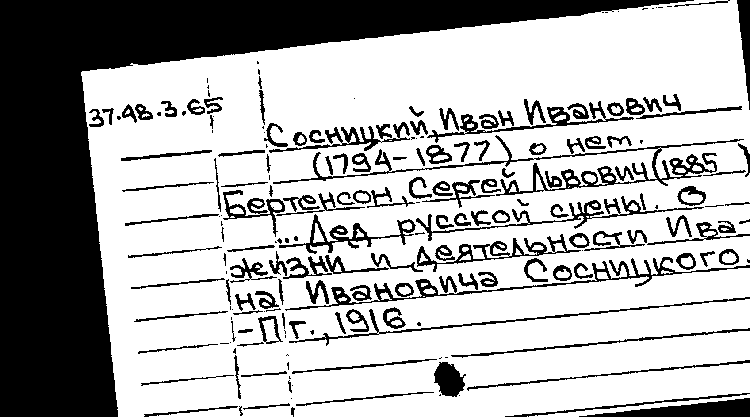 37.48.3.65
Сосницкий, Иван Иванович
(1794-1877) о нем.
Бертенсон, Сергей Львович (1885 )
... Дед русской сцены. О
жизни и деятельности Ива-
на Ивановича Сосницкого.
-Пг., 1916.